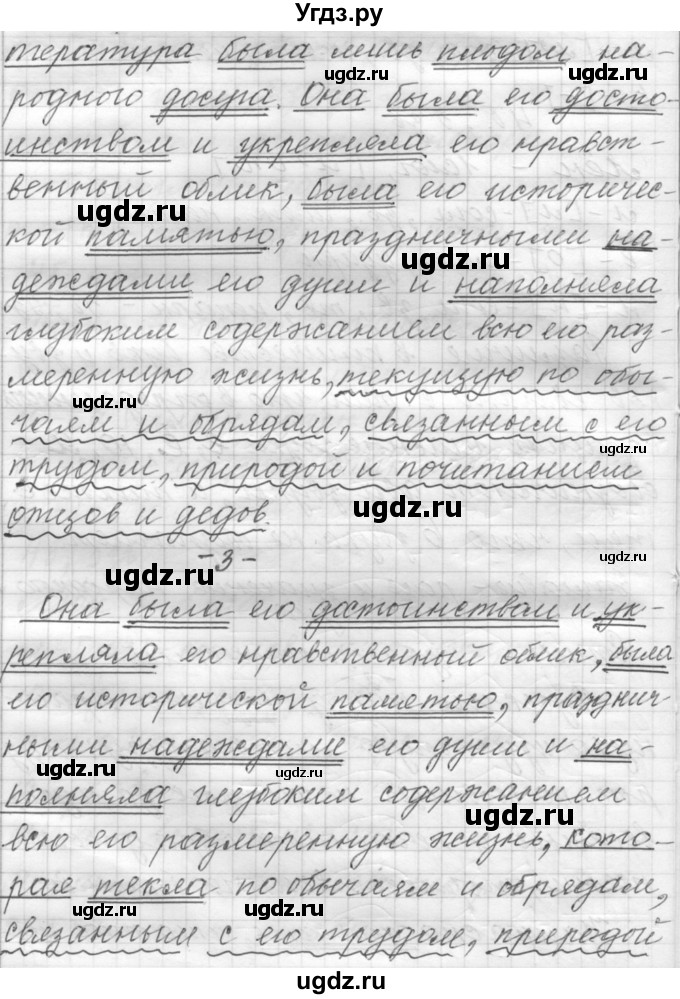 Угдз.ру
тература была лишь плодом на-
родного досуга. Она была его досто-
инством и укрепляла его нравст-
венный облик, была его историчес-
кой памятью, праздничными на-
деждами его души и наполняла
глубоким содержанием всю его раз-
меренную жизнь, текущую по обы-
чаям и обрядам, связанным с его
трудом, природой и почитанием
отцов и дедов.
-3-
Она была его достоинством и ук-
репляла его нравственный облик, была
его исторической памятью, празднич-
ными надеждами его души и на-
полняла глубоким содержанием
всю его размеренную жизнь, кото-
рая текла по обычаям и обрядам,
связанным с его трудом, природой
ugdz.ru